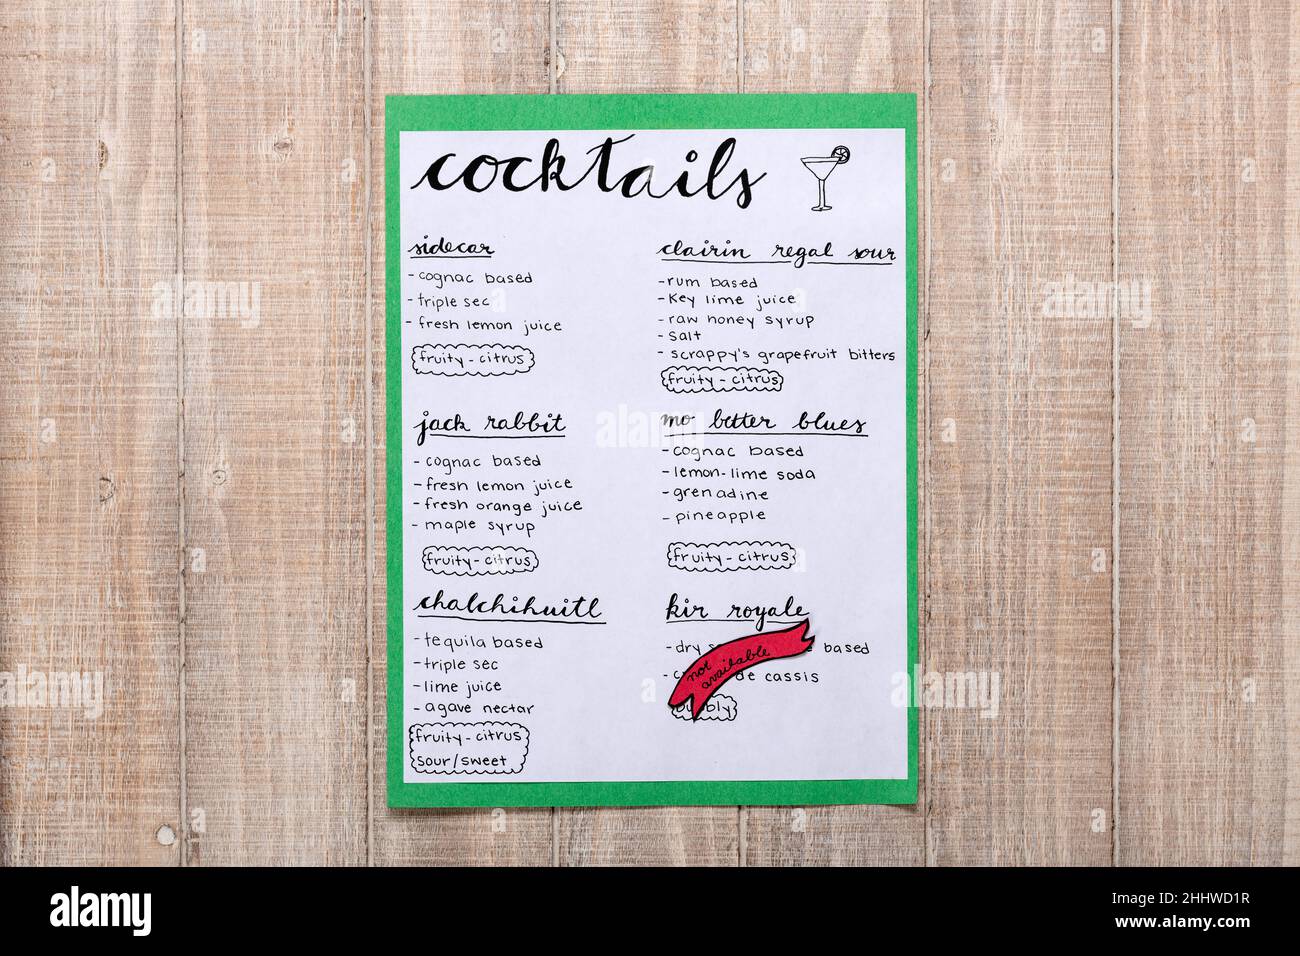 cocktails
sidecar
- cognac based
- triple sec
- fresh lemon juice
fruity - citrus
jack rabbit
- cognac based
- fresh lemon juice
- fresh orange juice
- maple syrup
fruity - citrus
chalchihuitl
- tequila based
- triple sec
- lime juice
- agave nectar
fruity - citrus
sour/sweet
clairin regal sour
- rum based
- key lime juice
- raw honey syrup
- salt
- scrappy's grapefruit bitters
fruity - citrus
mo better blues
- cognac based
- lemon-lime soda
- grenadine
- pineapple
fruity - citrus
kir royale
- dry based
- de cassis
not
available
alamy
Image ID: 2HHWD1R
www.alamy.com